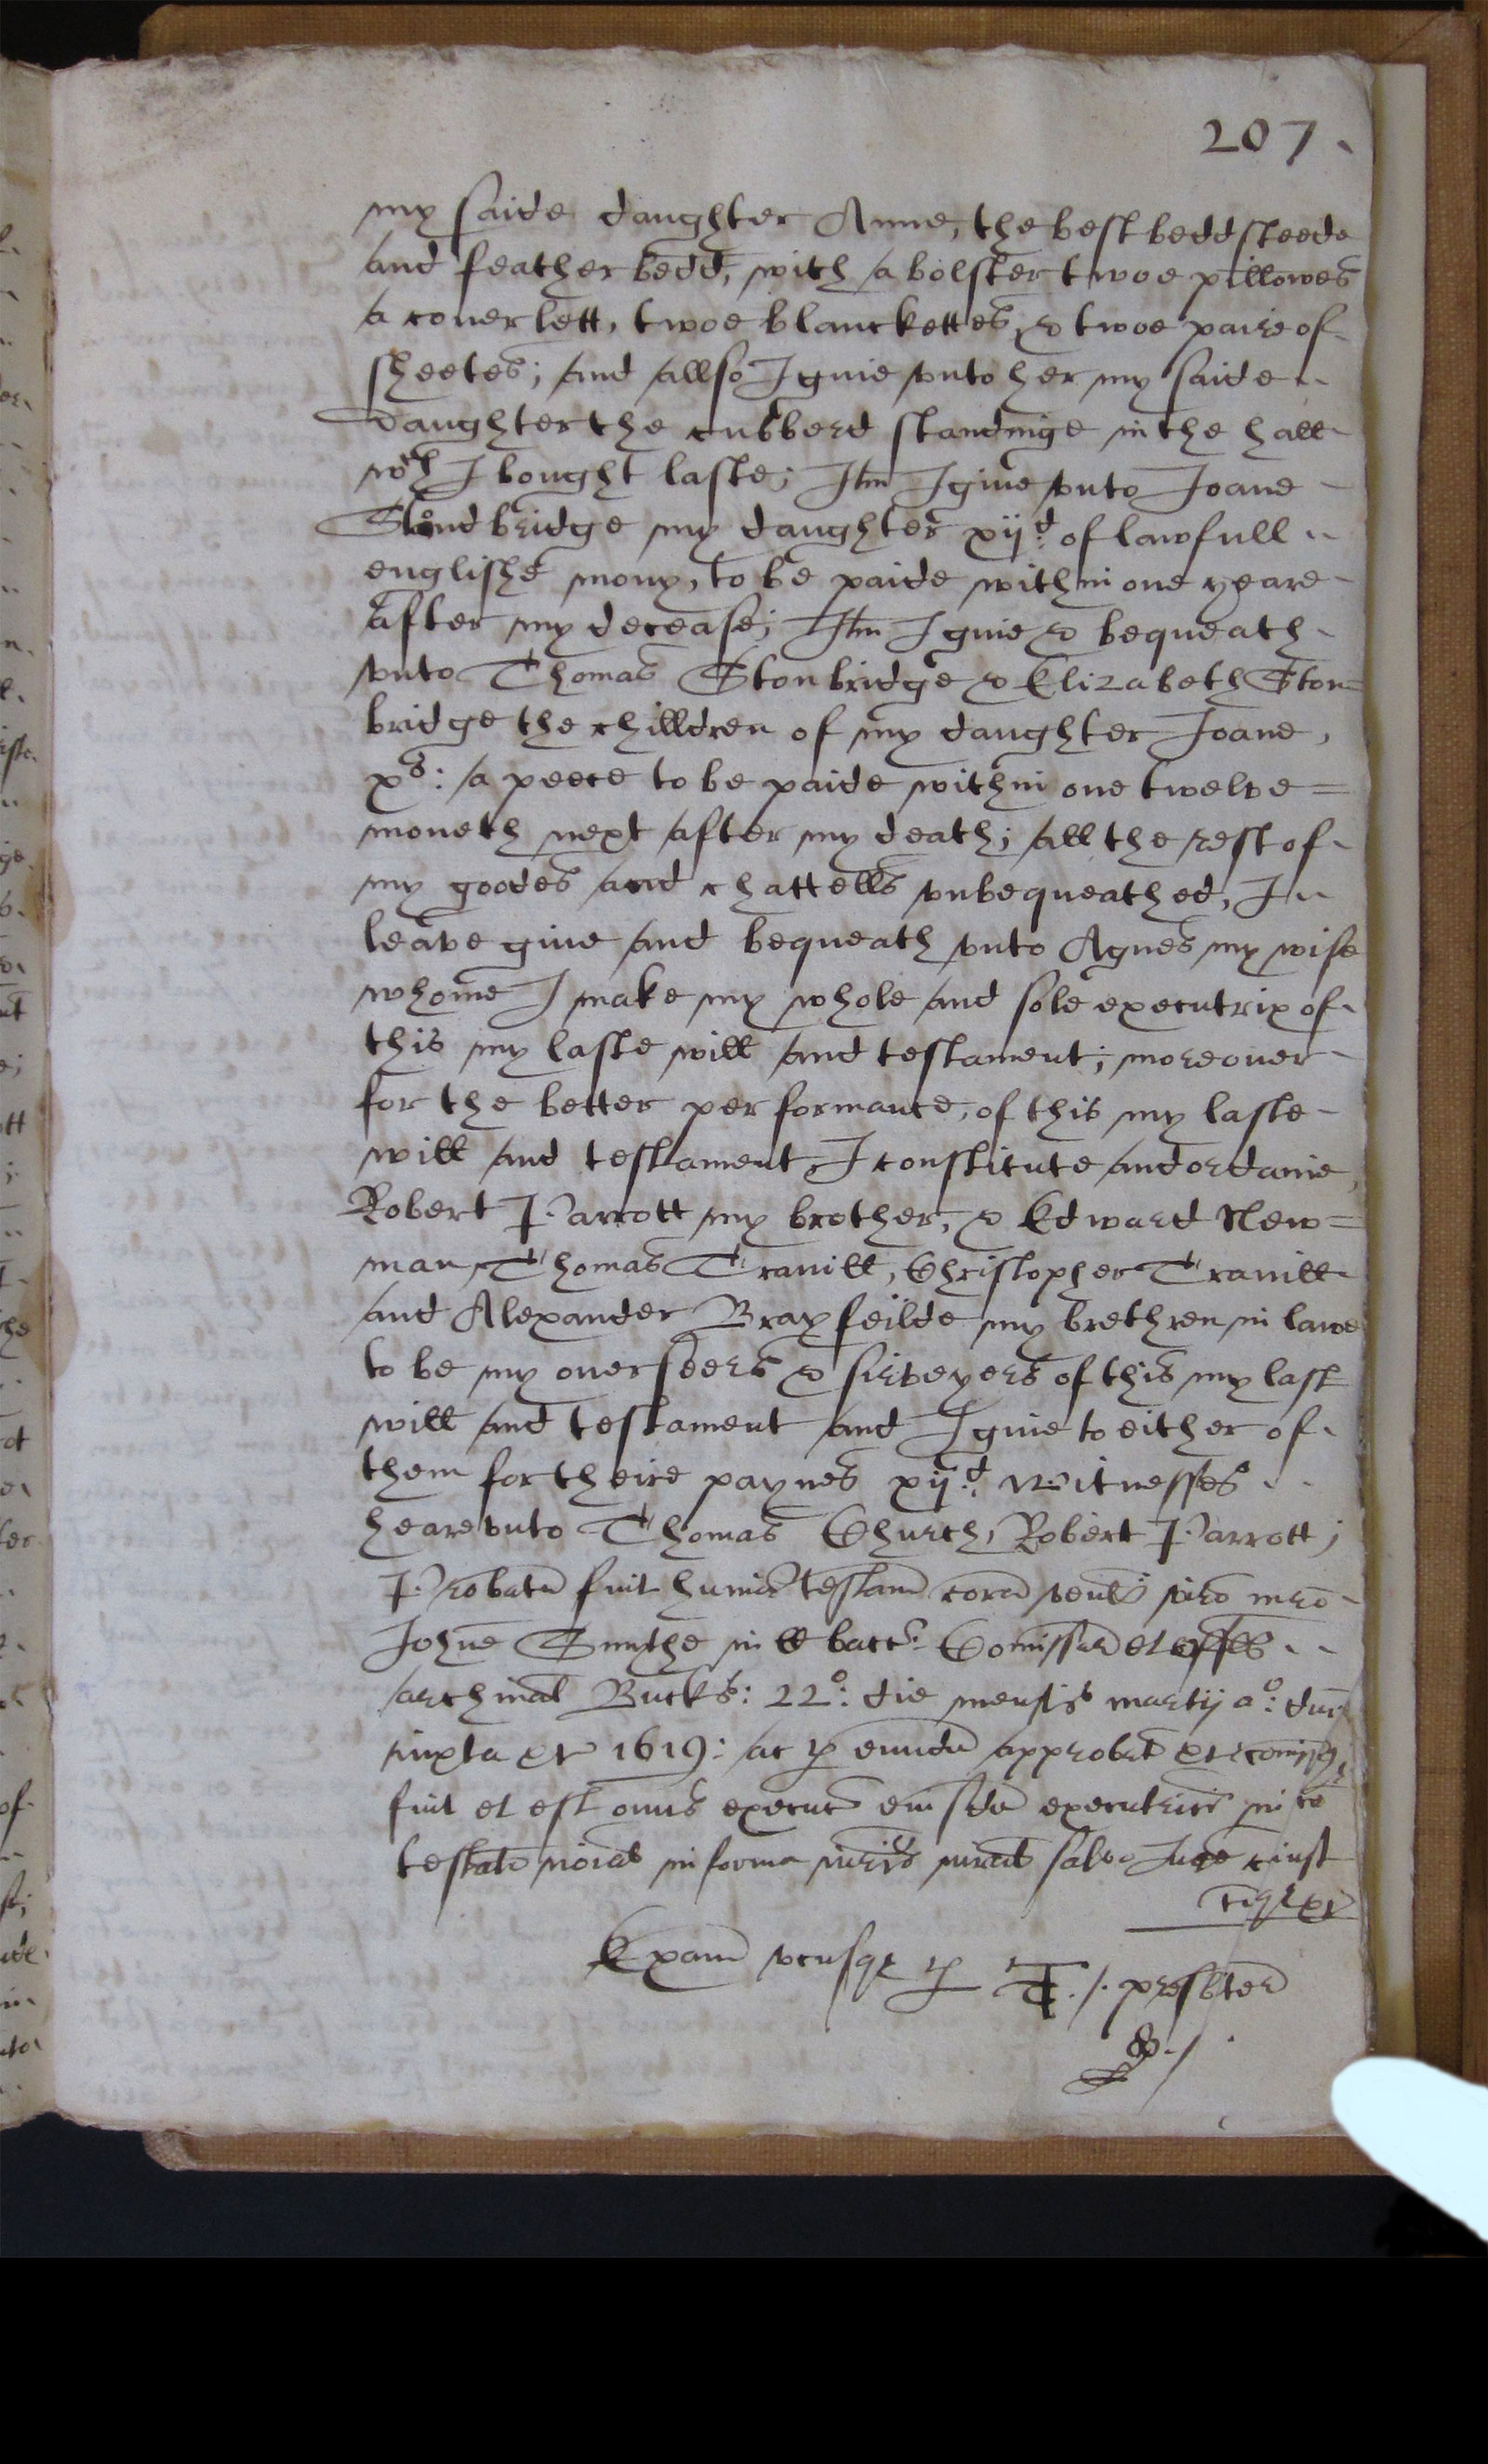 207
my saide daughter Anne, the best beddsteede
and featherbedd, with a bolster twoe pillowes
a couerlett, twoe blanckettes, & twoe paire of
sheetes; and allso I giue vnto her my saide
daughter the cubberd standinge in the hall
wch I bought laste; Itm I giue vnto Joane
Stondbridge my daughter xijd of lawfull
englishe mony, to be paide within one yeare
after my decease; Itm I giue & bequeath
vnto Thomas Stonbridge & Elizabeth Ston=
bridge the chilldren of my daughter Joane,
xs: a peece to be paide within one twelve=
moneth next after my death; all the rest of
my goodes and chattells vnbequeathed, I
leave giue and bequeath vnto Agnes my wife
whome I make my whole and sole executrix of
this my laste will and testament; moreouer
for the better performance, of this my laste
will and testament, I constitute and ordaine
Robert Parrott my brother, & Edward New=
man, Thomas Travill, Christopher Travill
and Alexander Brayfeilde my brethren in lawe
to be my ouerseers & surveyers of this my last
will and testament and I giue to either of
them for theire paynes xijd: Witnesses
heare vnto Thomas Church, Robert Parrott;
Probatu fuit humoi testam cora ven viro mro
Johne Smythe in ll bacc: Comissar et offll
archinat Bucks: 22o: die mensis martij ao: dni
iuxta &c 1619: ac p eunde approbat &c comiss
fuit et est onus execuc eiusde executrici in
testato noiat in forma iuris iurat salvo Jure cuiuscu
Exam p T. presbiter